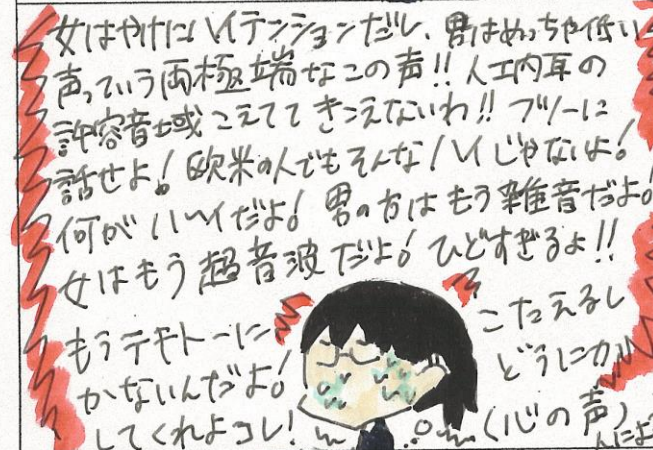 女はやけにハイテンションだし、男はめっちゃ低い
声っていう両極端なこの声!!人工内耳の
許容音域こえててきこえないわ!!フツーに
話せよ!欧米の人でもそんなハイじゃないよ!
何がハハイだよ!男の方はもう雑音だよ!
女はもう超音波だよ!ひどすぎるよ!!
もうテキトーに
こたえるし
かないんだよ!
どうにか
してくれよコレ!
(心の声)